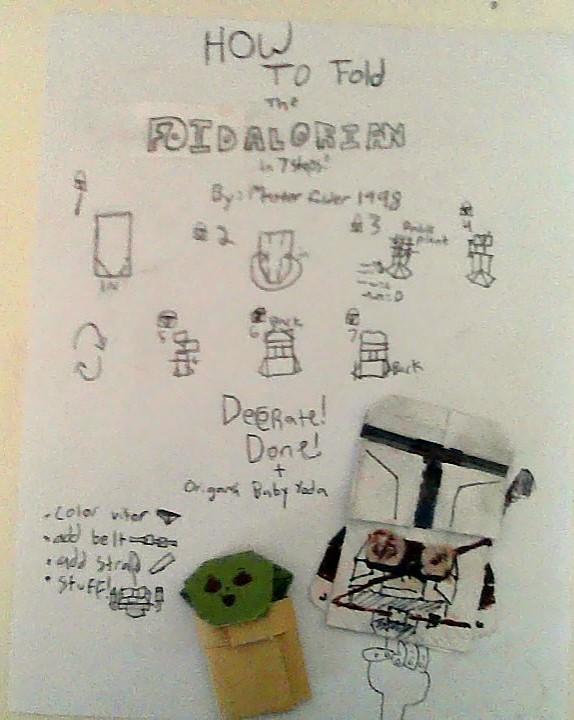 HOW
TO Fold
The
FOIDALORIAN
in 7 steps!
By: 1998
1
2
3
4
5
6 Back
7
Back
Decorate!
Done!
+
Origami Baby Yoda
• color visor
• add belt
• add strap
• stuff!